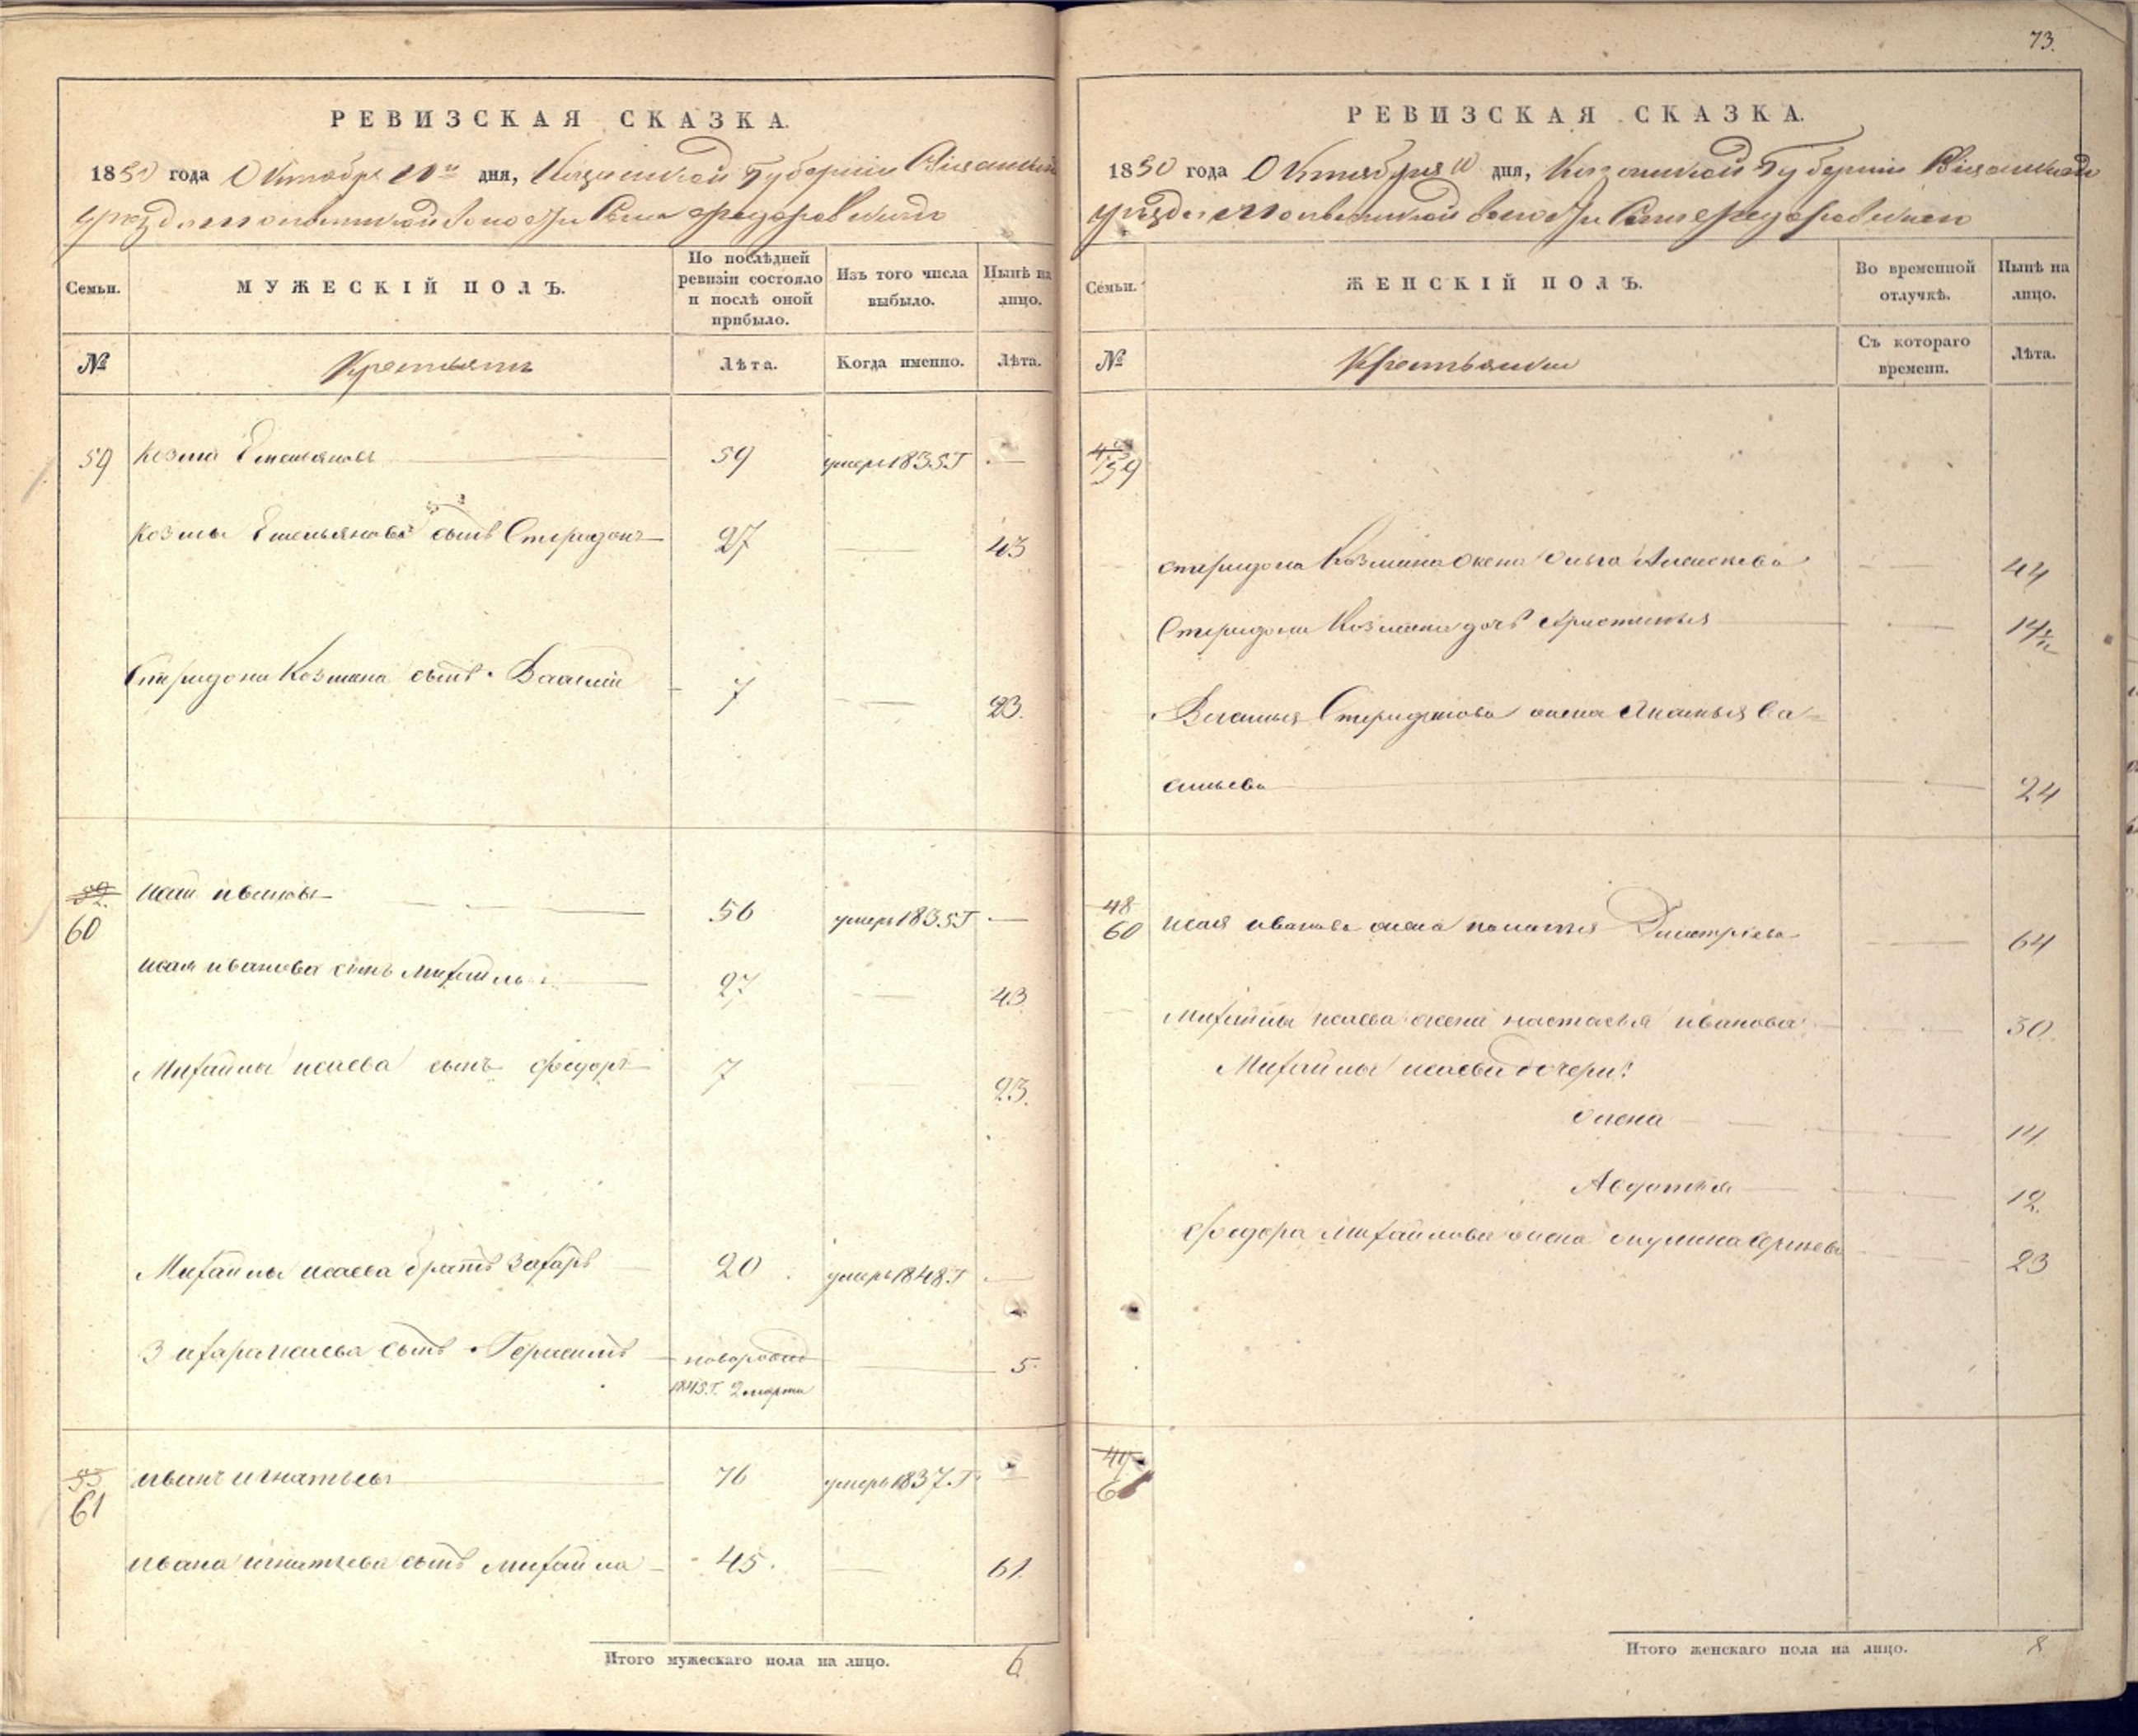 73.
РЕВИЗСКАЯ СКАЗКА.
1850 года Октября 10го дня, Казанской Губернии
уезда волости Села Федоровскаго
Семьи.
МУЖЕСКІЙ ПОЛЪ.
По послѣдней ревизіи состояло и послѣ оной прибыло.
Изъ того числа выбыло.
Нынѣ на лицо.
№
Крестьяне
Лѣта.
Когда именно.
Лѣта.
59 Козма Емельяновъ 59 умеръ 1835 Г —
Козмы Емельянова сынъ Спиридонъ 27 — 43
Спиридона Козмина сынъ Василій 7 — 23.
52.
60 Исай Ивановъ 56 умеръ 1835 Г —
Исая Иванова сынъ Михайла 27 — 43
Михайлы Исаева сынъ Федоръ 7 23.
Михайлы Исаева братъ Захаръ 20 умеръ 1848 Г —
Захара Исаева сынъ Герасимъ новорожд — 5
1845 Г. 2 марта
53
61 Иванъ Игнатьевъ 76 умеръ 1837 Г —
Ивана Игнатьева сынъ Михайла 45. — 61.
Итого мужескаго пола на лицо. 6
РЕВИЗСКАЯ СКАЗКА.
1850 года Октября 10 дня, Казанской Губернии
уезда волости Села Федоровскаго
Семьи.
ЖЕНСКІЙ ПОЛЪ.
Во временной отлучкѣ.
Нынѣ на лицо.
№
Крестьянки
Съ котораго времени.
Лѣта.
59
Спиридона Козмина жена Ольга Алексеева — 44
Спиридона Козмина дочь — 14
Василья Спиридонова жена Ва=
сильева — 24
48
60 Исая Иванова жена Дмитріева — 64
Михайлы Исаева жена Настасья Иванова 50.
Михайлы Исаева дочери:
Олена — 14.
Авдотья — 12.
Федора Михайлова жена Акулина Сергеева — 23
49
61
Итого женскаго пола на лицо. 8